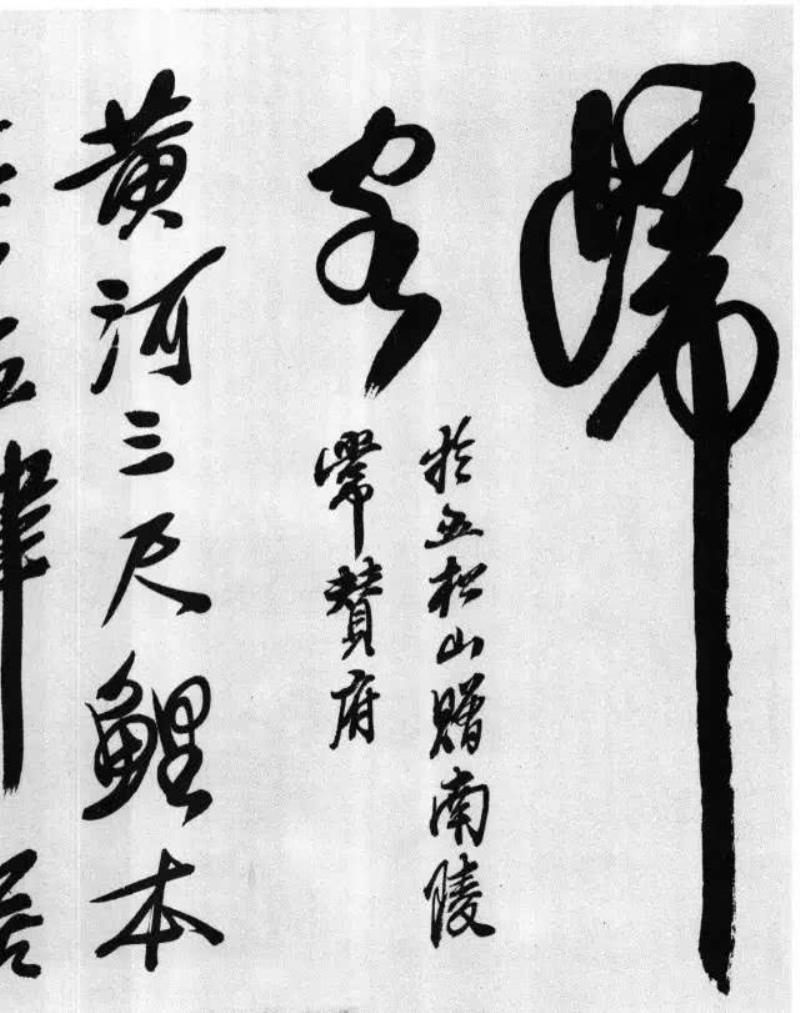 歸
客
於五松山贈南陵
常贊府
黃河三尺鯉本